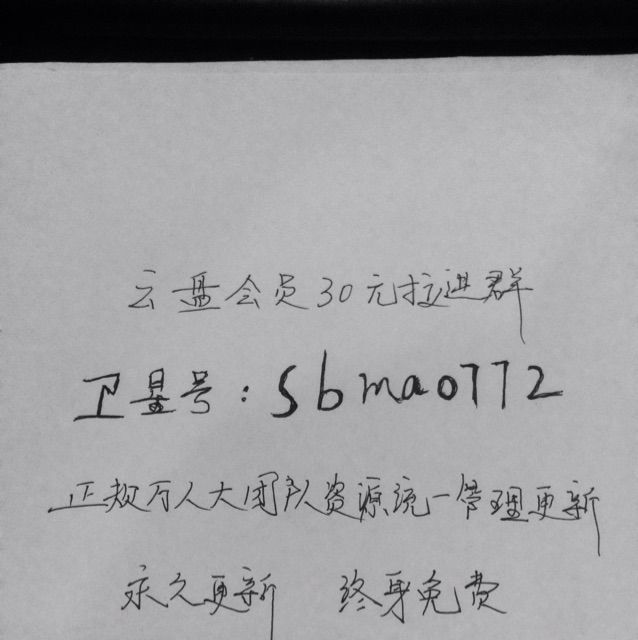 云盘会员30元拉进群
卫星号:sbmao772
正规万人大团队资源统一管理更新
永久更新 终身免费